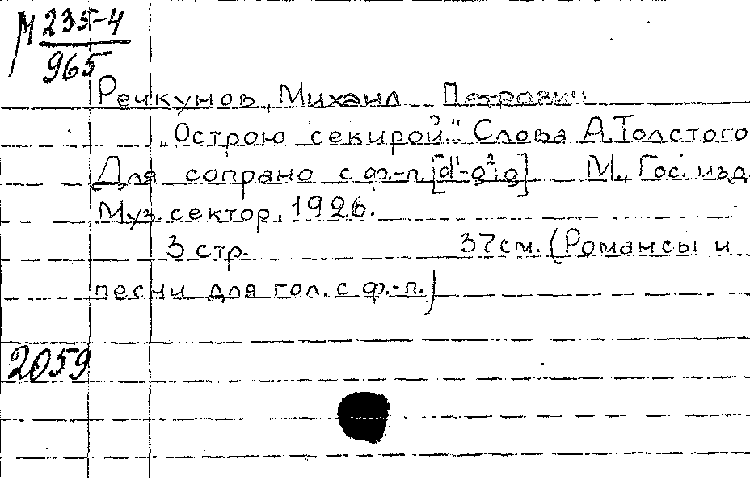 М 235-4
965
Речкунов, Михаил Петрович
„Острою секирой." Слова А.Толстого
Для сопрано с ф.-п. [d¹-g²; g] М., Гос. изд.
Муз. сектор, 1926.
3 стр. 37см. (Романсы и
песни для гол. с ф.-п.)
2059